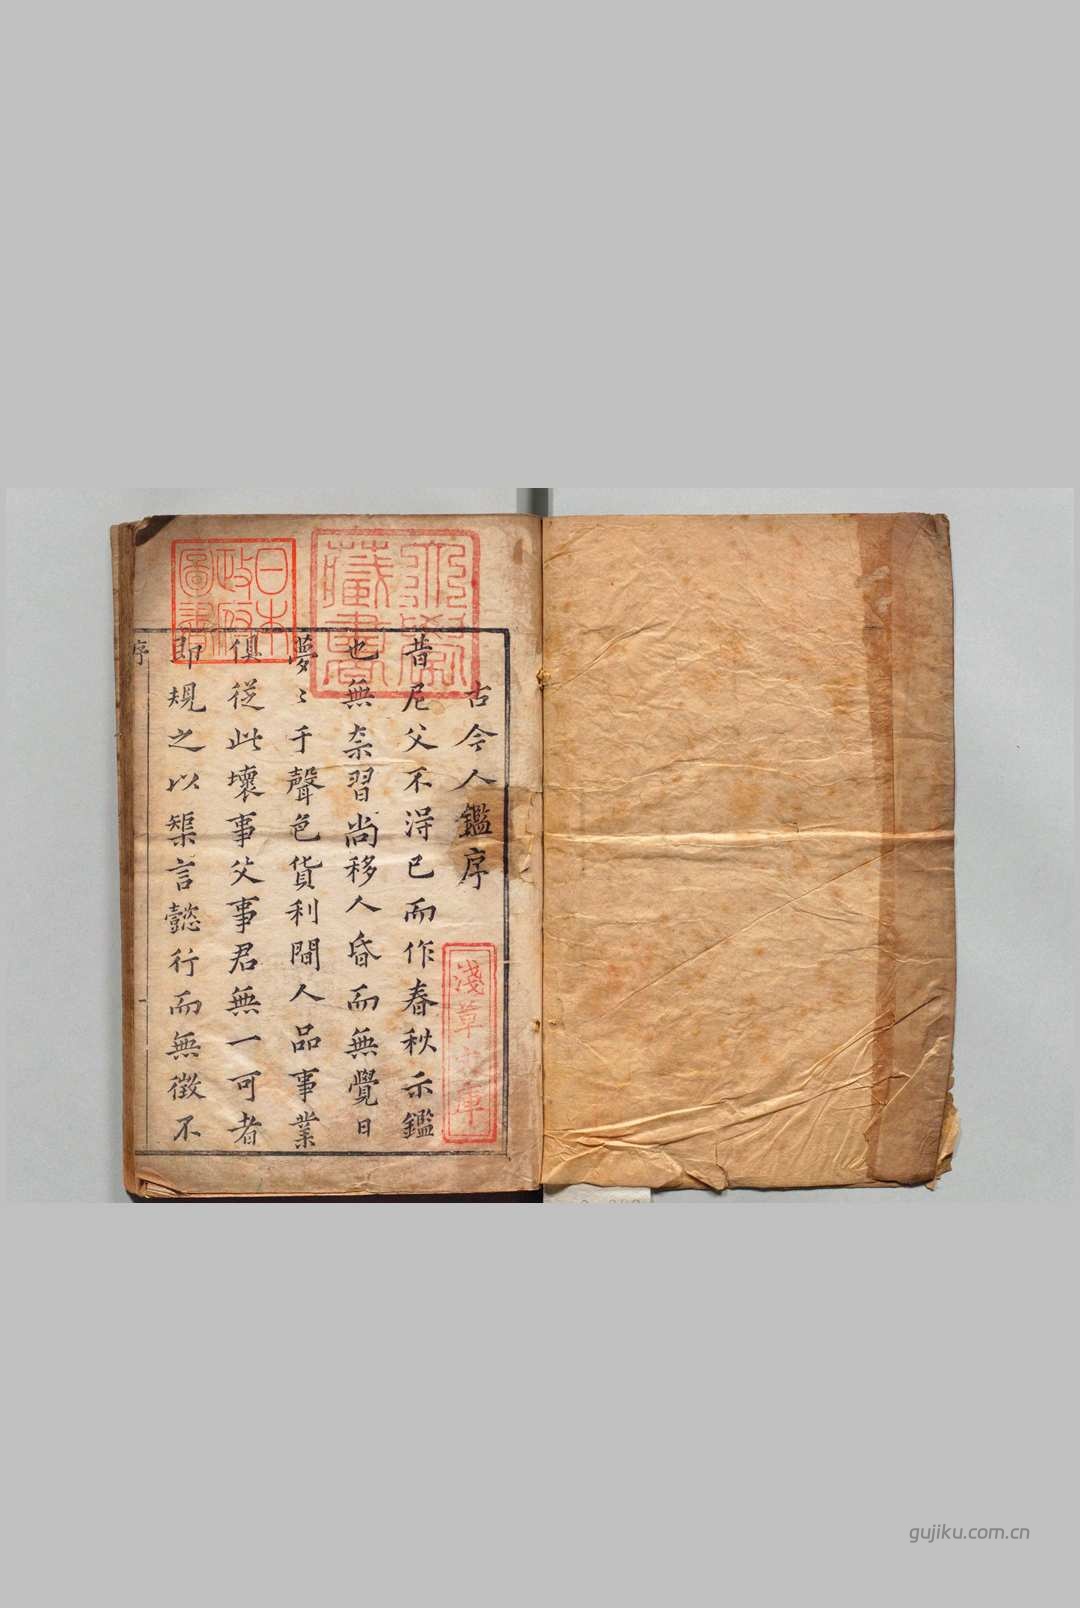 古今人鑑序
昔尼父不淂已而作春秋示鑑
也無柰習尚移人昏而無覺日
夢〻于聲色貨利間人品事業
俱從此壞事父事君無一可者
即規之以榘言懿行而無徵不
序
日本
政府
圖書
藏書
淺草文庫
gujiku.com.cn